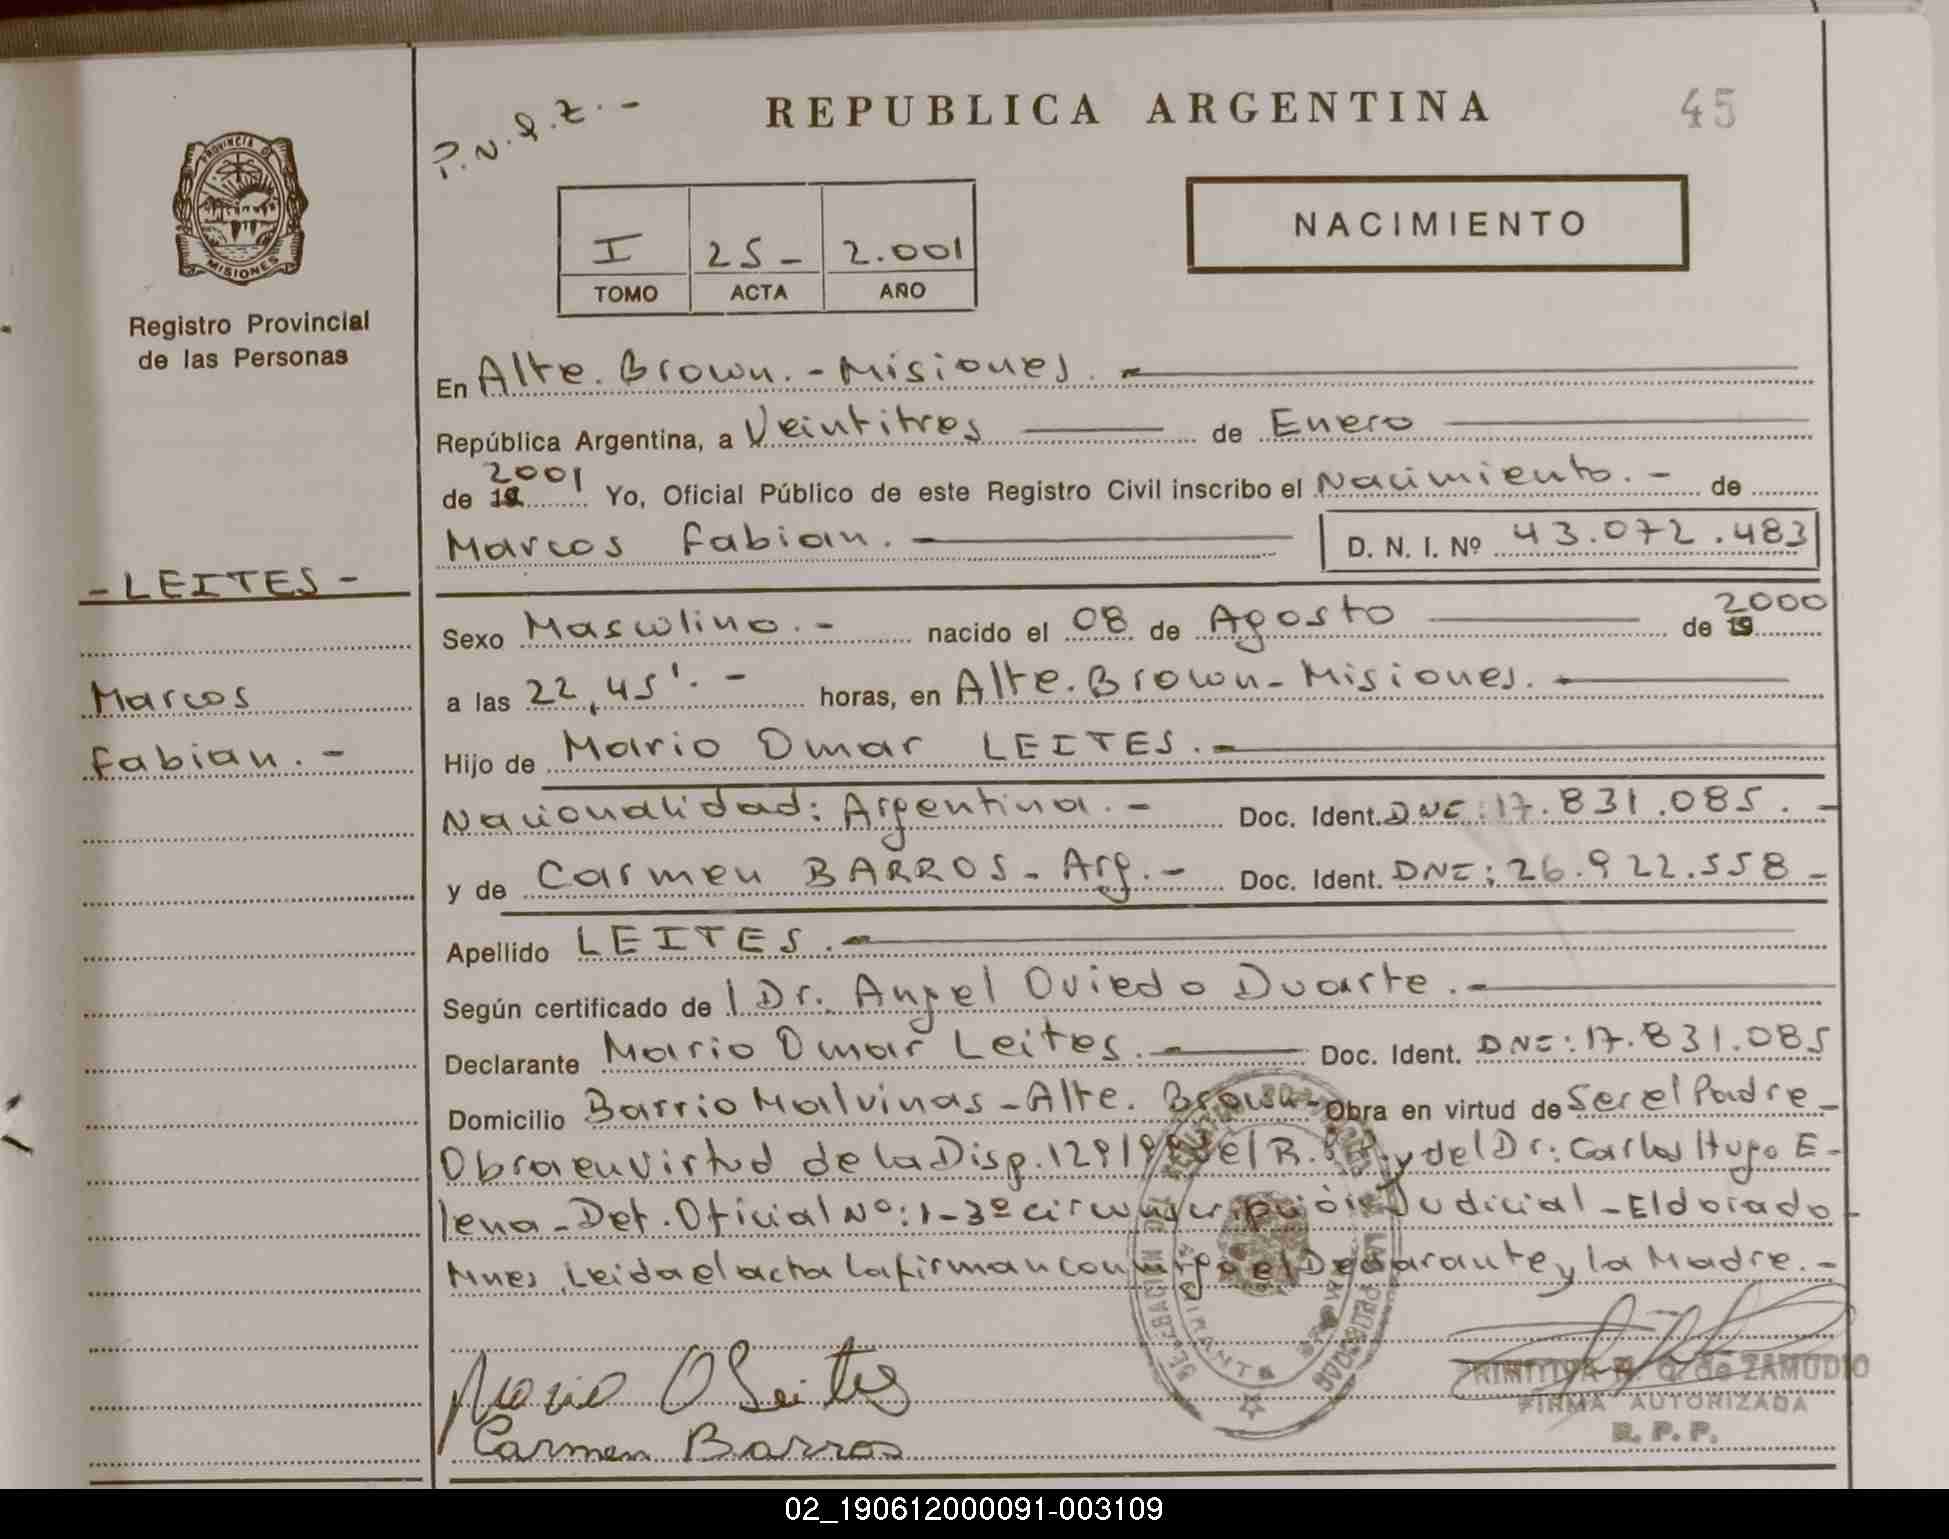 P.N.Q.Z.-
REPUBLICA ARGENTINA
45
PROVINCIA DE
MISIONES
Registro Provincial
de las Personas
I 25- 2.001
TOMO ACTA AÑO
NACIMIENTO
En Alte. Brown.-Misiones.-
República Argentina, a Veintitres de Enero
de 19 2001 Yo, Oficial Público de este Registro Civil inscribo el Nacimiento.- de
Marcos Fabian.- D. N. I. Nº 43.072.483
-LEITES-
Marcos
Fabian.-
Sexo Masculino.- nacido el 08 de Agosto de 19 2000
a las 22,45'.- horas, en Alte. Brown-Misiones.-
Hijo de Mario Omar LEITES.-
Nacionalidad: Argentina.- Doc. Ident. DNI: 17.831.085.-
y de Carmen BARROS- Arg.- Doc. Ident. DNI: 26.922.558-
Apellido LEITES.-
Según certificado de l Dr. Angel Oviedo Duarte.-
Declarante Mario Omar Leites.- Doc. Ident. DNI: 17.831.085
Domicilio Barrio Malvinas-Alte. Brown- Obra en virtud de Ser el Padre-
Obra en virtud de la Disp. 129/ del R. y del Dr: Carlos Hugo E-
lena-Def. Oficial Nº: 1-3º circunscripción Judicial-Eldorado-
Mnes, Leida el acta la firman conmigo el Declarante y la Madre.-
Mario O Leites
Carmen Barros
de ZAMUDIO
FIRMA AUTORIZADA
R. P. P.
02_190612000091-003109